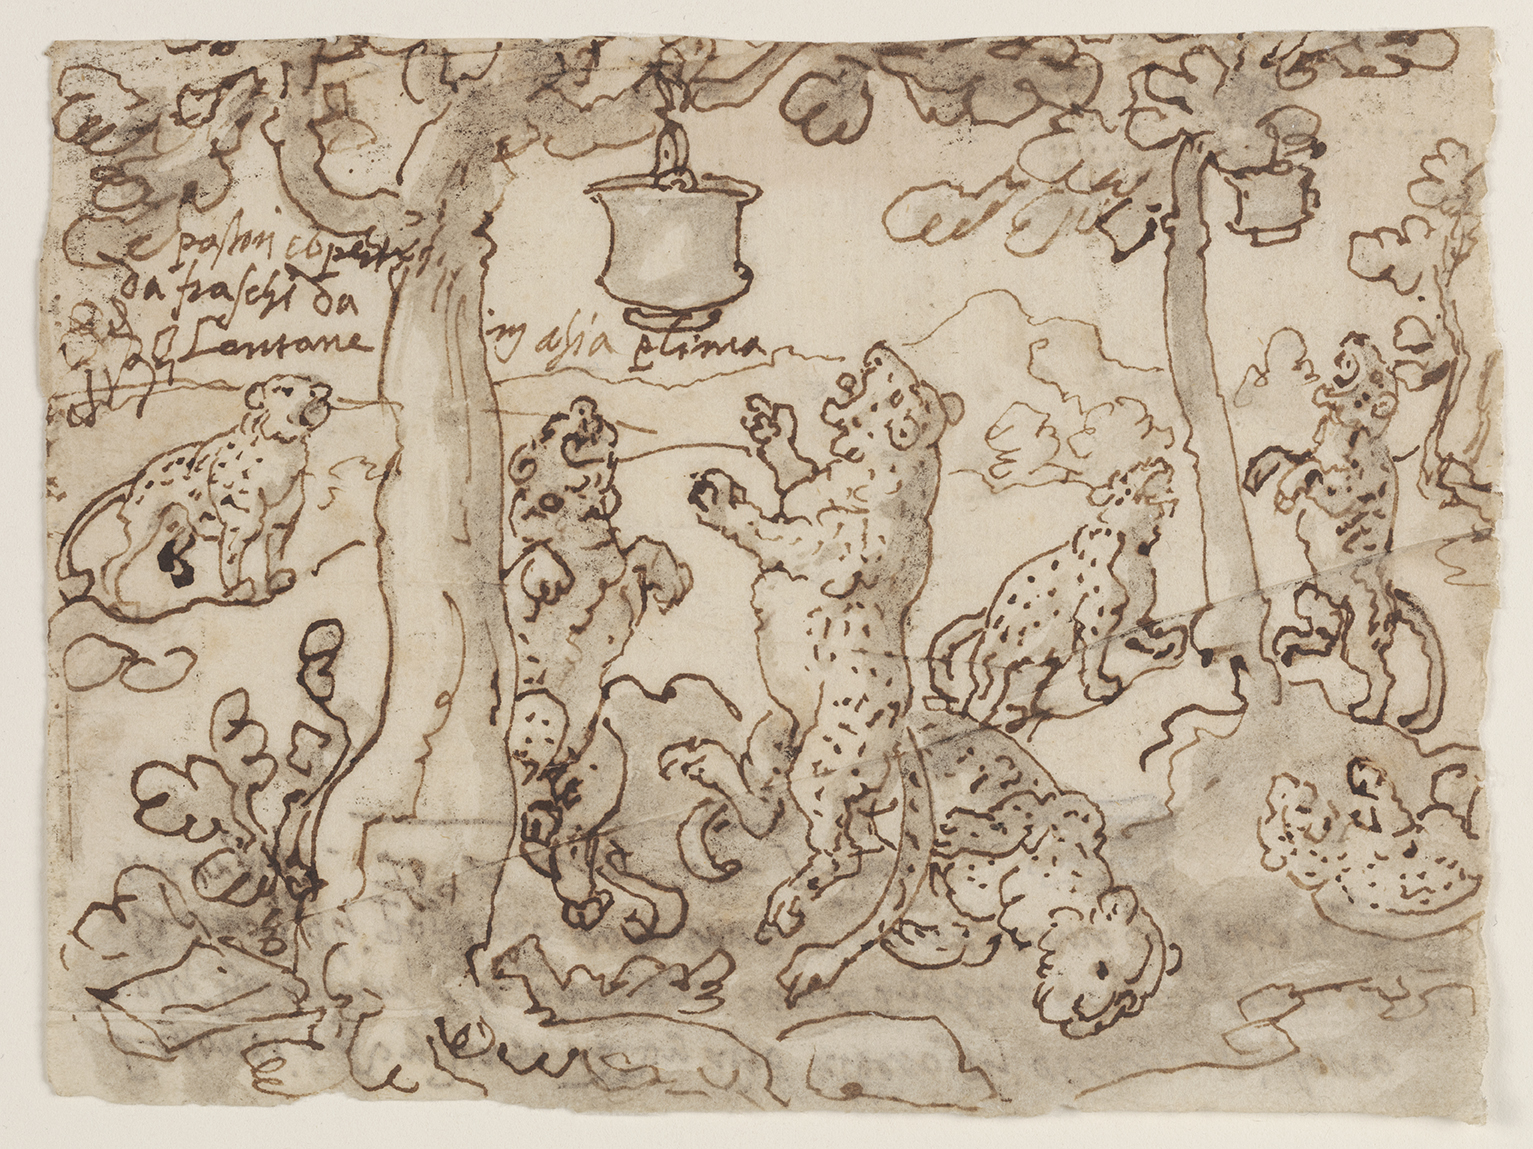 e pastori coperti
da fraschi da
Lontane
in asia plima